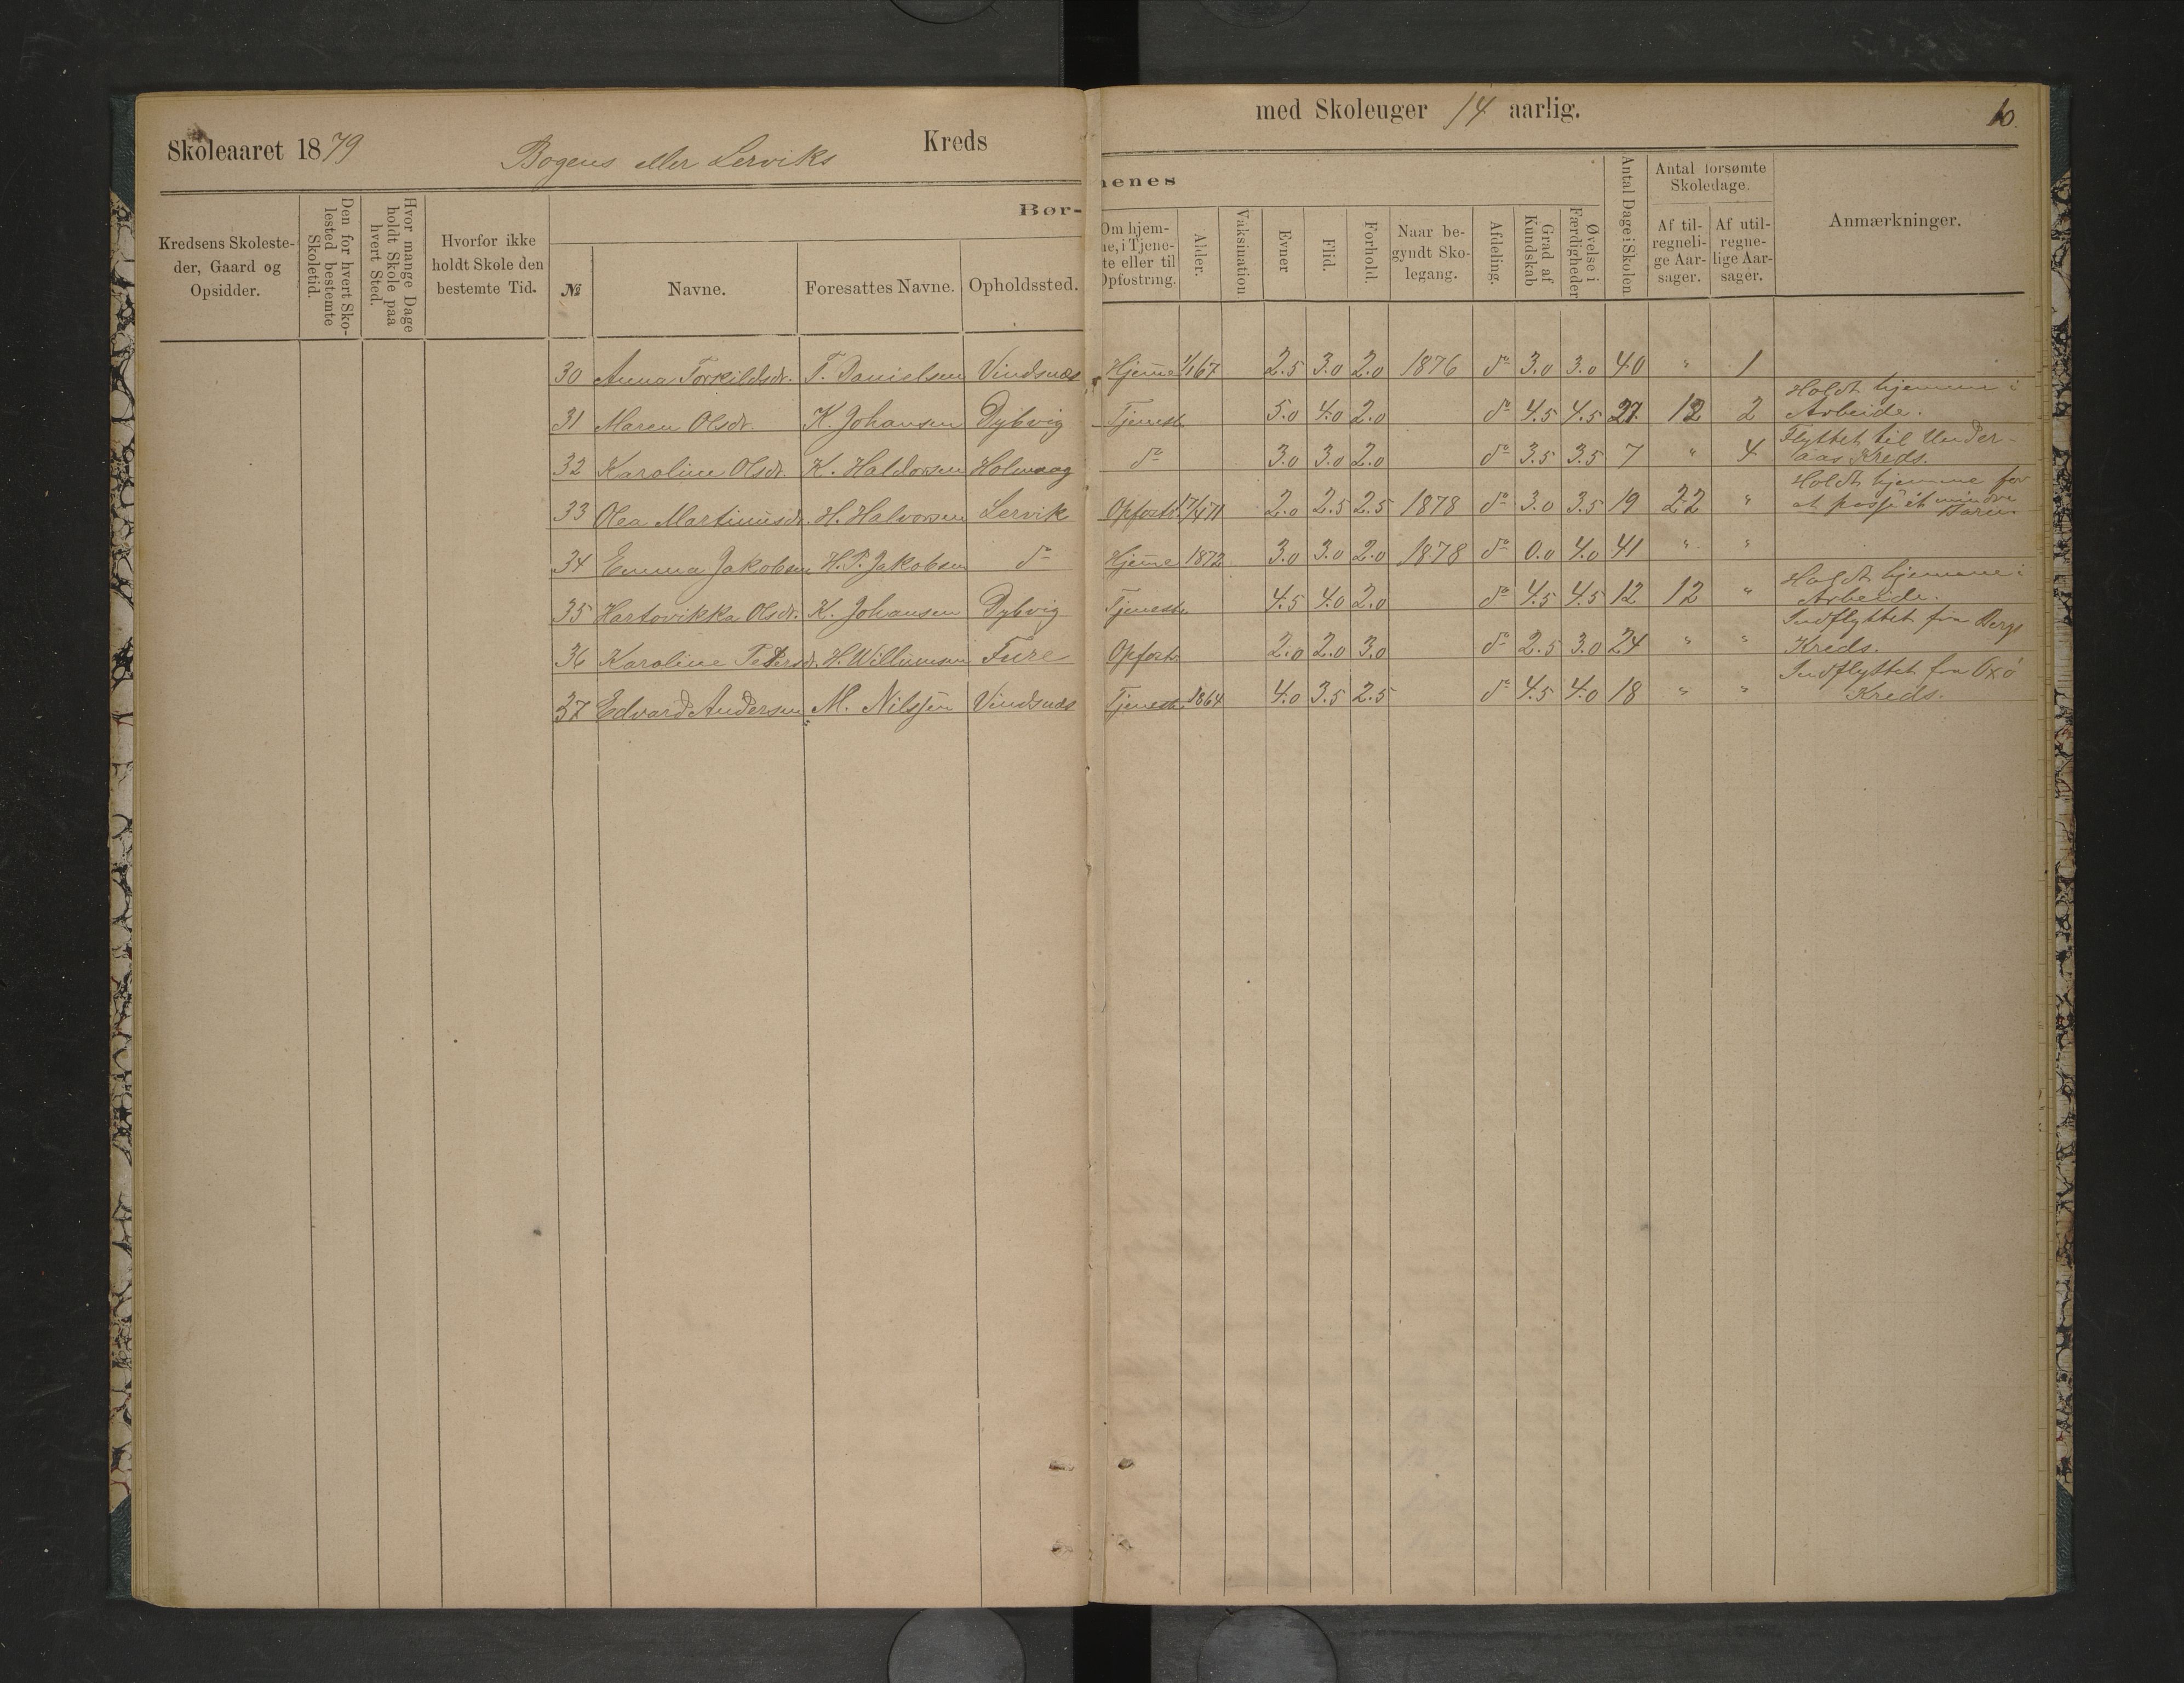 Skoleaaret 1879 Bogens eller Lerviks Kreds
med Skoleuger 14 aarlig.
10.
Kredsens Skolesteder, Gaard og Opsidder.
Den for hvert Skolested bestemte Skoletid.
Hvor mange Dage holdt Skole paa hvert Sted.
Hvorfor ikke holdt Skole den bestemte Tid.
Bør-
nenes
№ Navne. Foresattes Navne. Opholdssted.
Om hjemme, i Tjeneste eller til Opfostring.
Alder.
Vaksination
Evner
Flid.
Forhold.
Naar begyndt Skolegang.
Afdeling.
Grad af Kundskab
Øvelse i Færdigheder
Antal Dage i Skolen
Antal forsømte Skoledage.
Af tilregnelige Aarsager.
Af utilregnelige Aarsager.
Anmærkninger.
30 Anna Torkildsdr. T. Danielsen Vindsnæs Hjemme 1/1 67 2.5 3.0 2.0 1876 do 3.0 3.0 40 " 1
31 Maren Olsdr. K. Johansen Dybvig Tjeneste 5.0 4.0 2.0 do 4.5 4.5 27 12 2 Holdt hjemme i
Arbeide.
32 Karoline Olsdr. K. Haldorsen Holmvaag do 3.0 3.0 2.0 do 3.5 3.5 7 " 4 Flyttet til Under-
aas Kreds.
33 Olea Martinusdr. H. Halvorsen Lervik Opfostr. 17/4 71 2.0 2.5 2.5 1878 do 3.0 3.5 19 22 " Holdt hjemme for
at passe et mindre Barn.
34 Emma Jakobsen H. P. Jakobsen do Hjemme 1872 3.0 3.0 2.0 1878 do 0.0 4.0 41 " "
35 Hartvikka Olsdr. K. Johansen Dybvig Tjeneste 4.5 4.0 2.0 do 4.5 4.5 12 12 " Holdt hjemme i
Arbeide.
36 Karoline Pedersd. H. Willumsen Fure Opfostr. 2.0 2.0 3.0 do 2.5 3.0 24 " " Indflyttet fra Bergs
Kreds.
37 Edvard Andersen M. Nilssen Vindsnæs Tjeneste 1864 4.0 3.5 2.5 do 4.5 4.0 18 " " Indflyttet fra Oxø
Kreds.